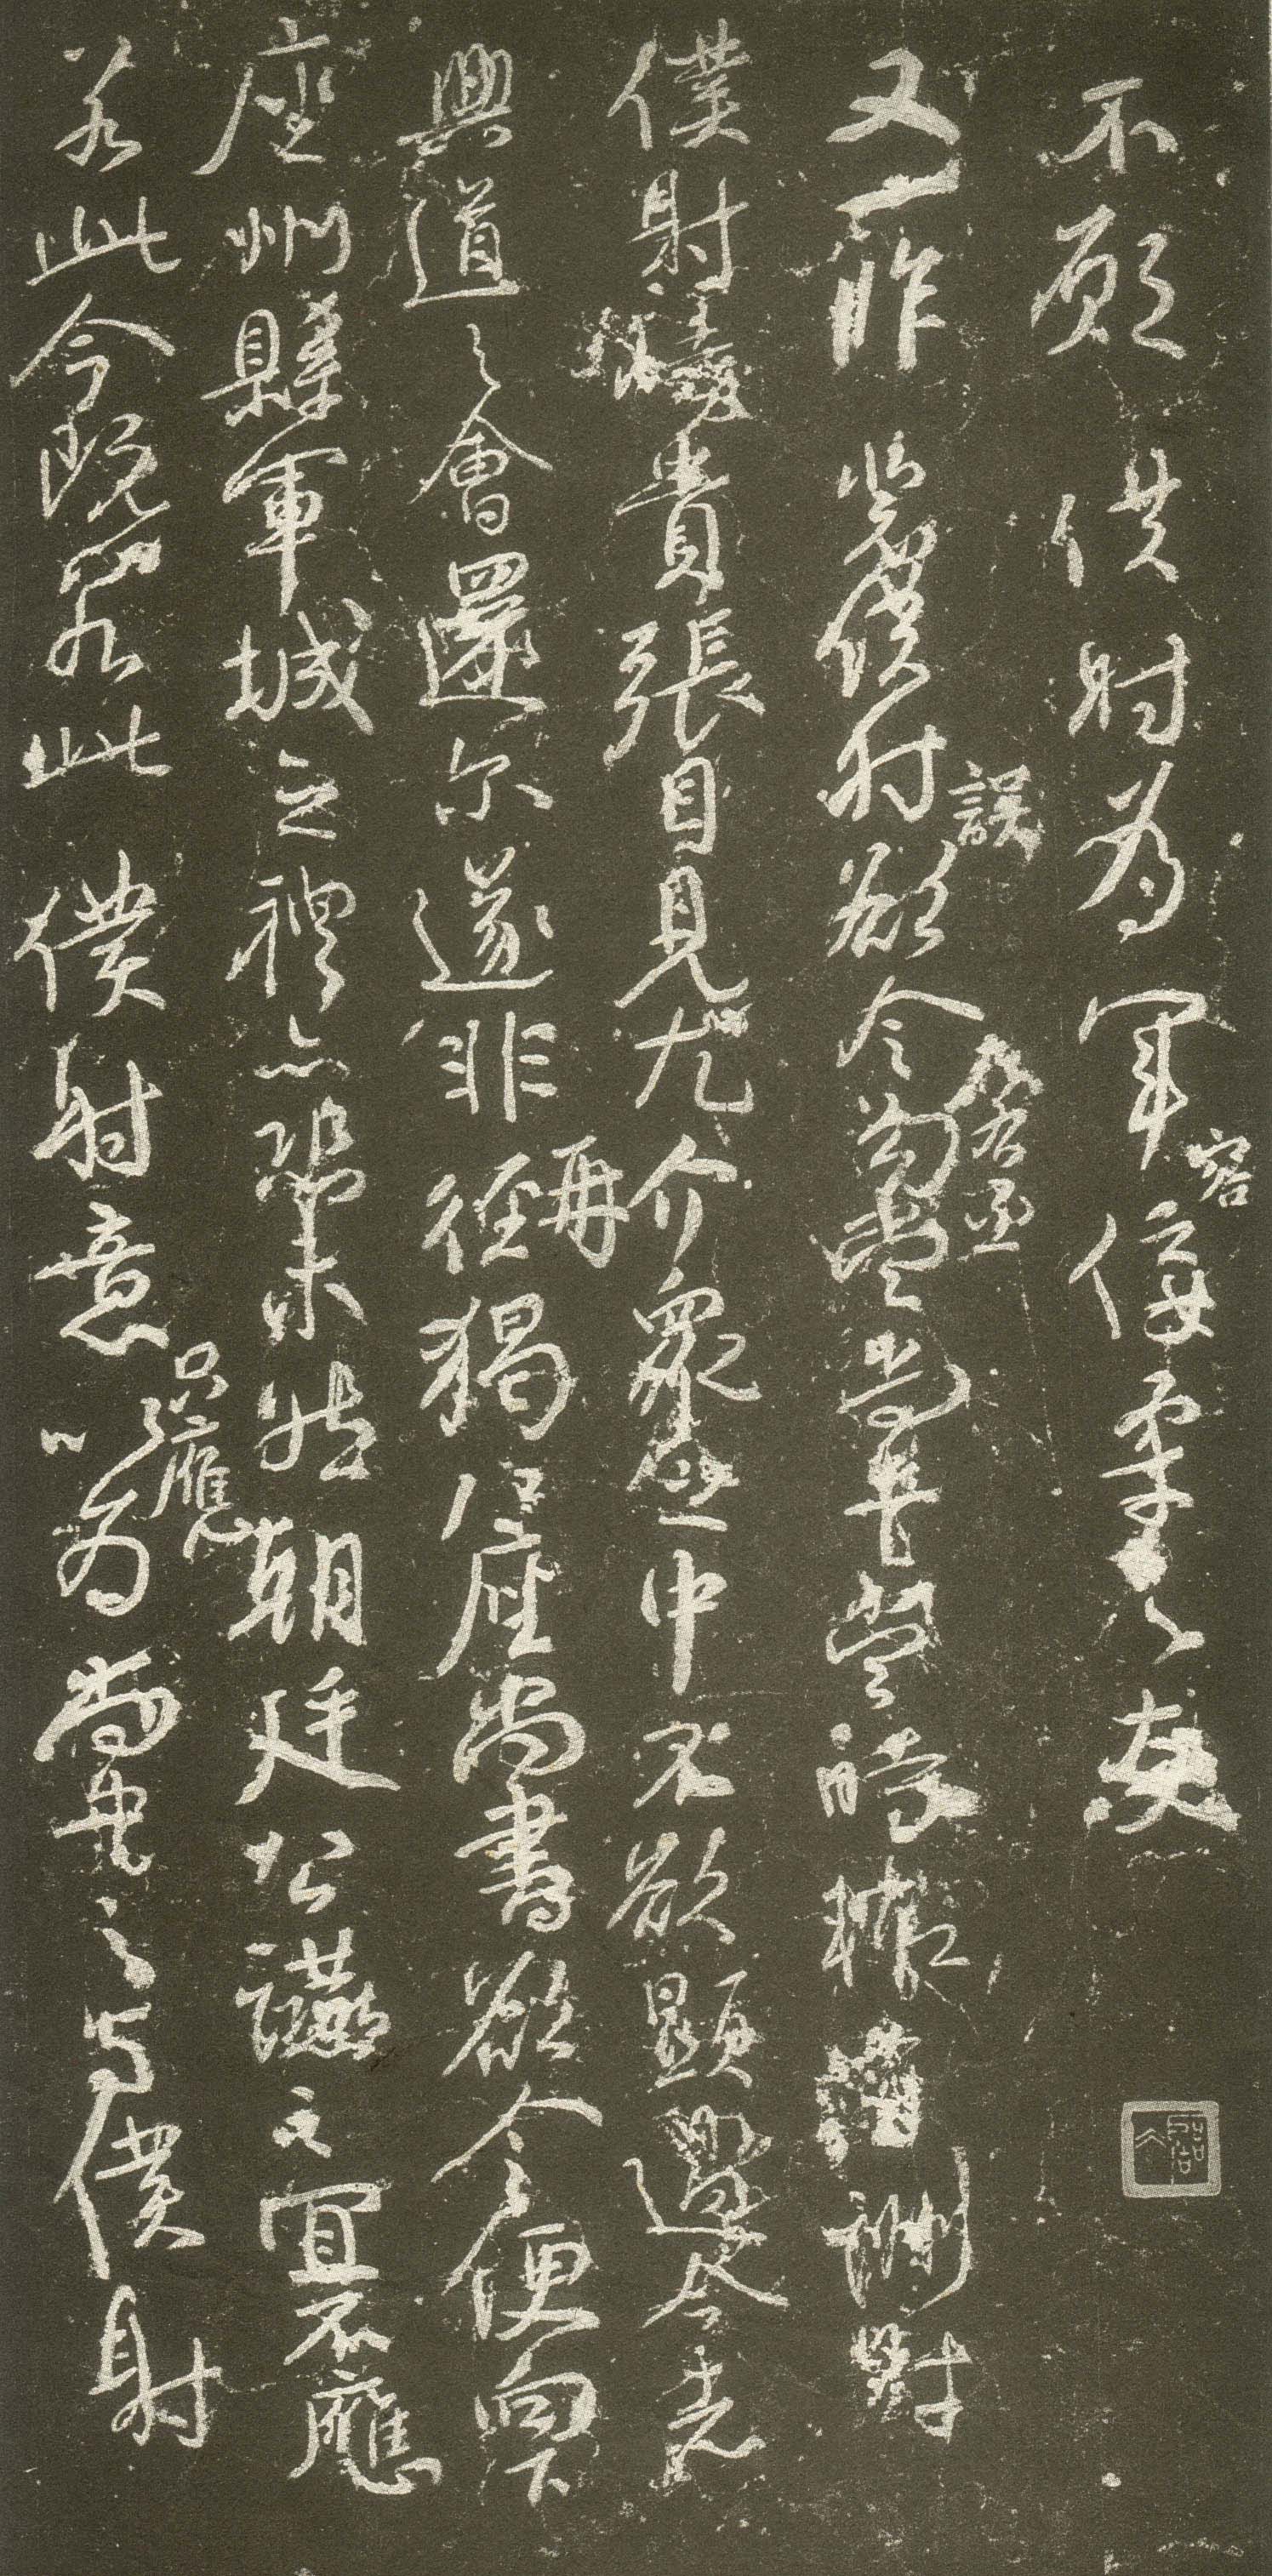 不願僕射為軍容佞柔之友
又一昨裴僕射誤欲令左右丞勾當尚書當時輒有酬對
僕射恃貴張目見尤介衆之中不欲顯過今者
興道之會還尓遂非再猲八座尚書欲令便向下
座州縣軍城之禮亦恐未然朝廷公讌之宜不應
若此今既若此僕射意只應以為尚書之与僕射